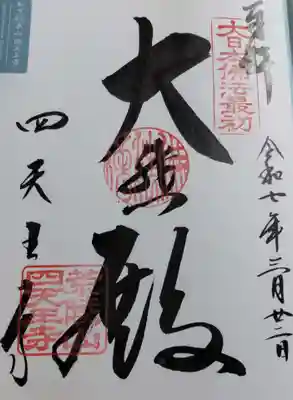 奉拝
大日本佛法最初
令和七年三月廿二日
大悲殿
四天王寺
荒陵山
四天王寺